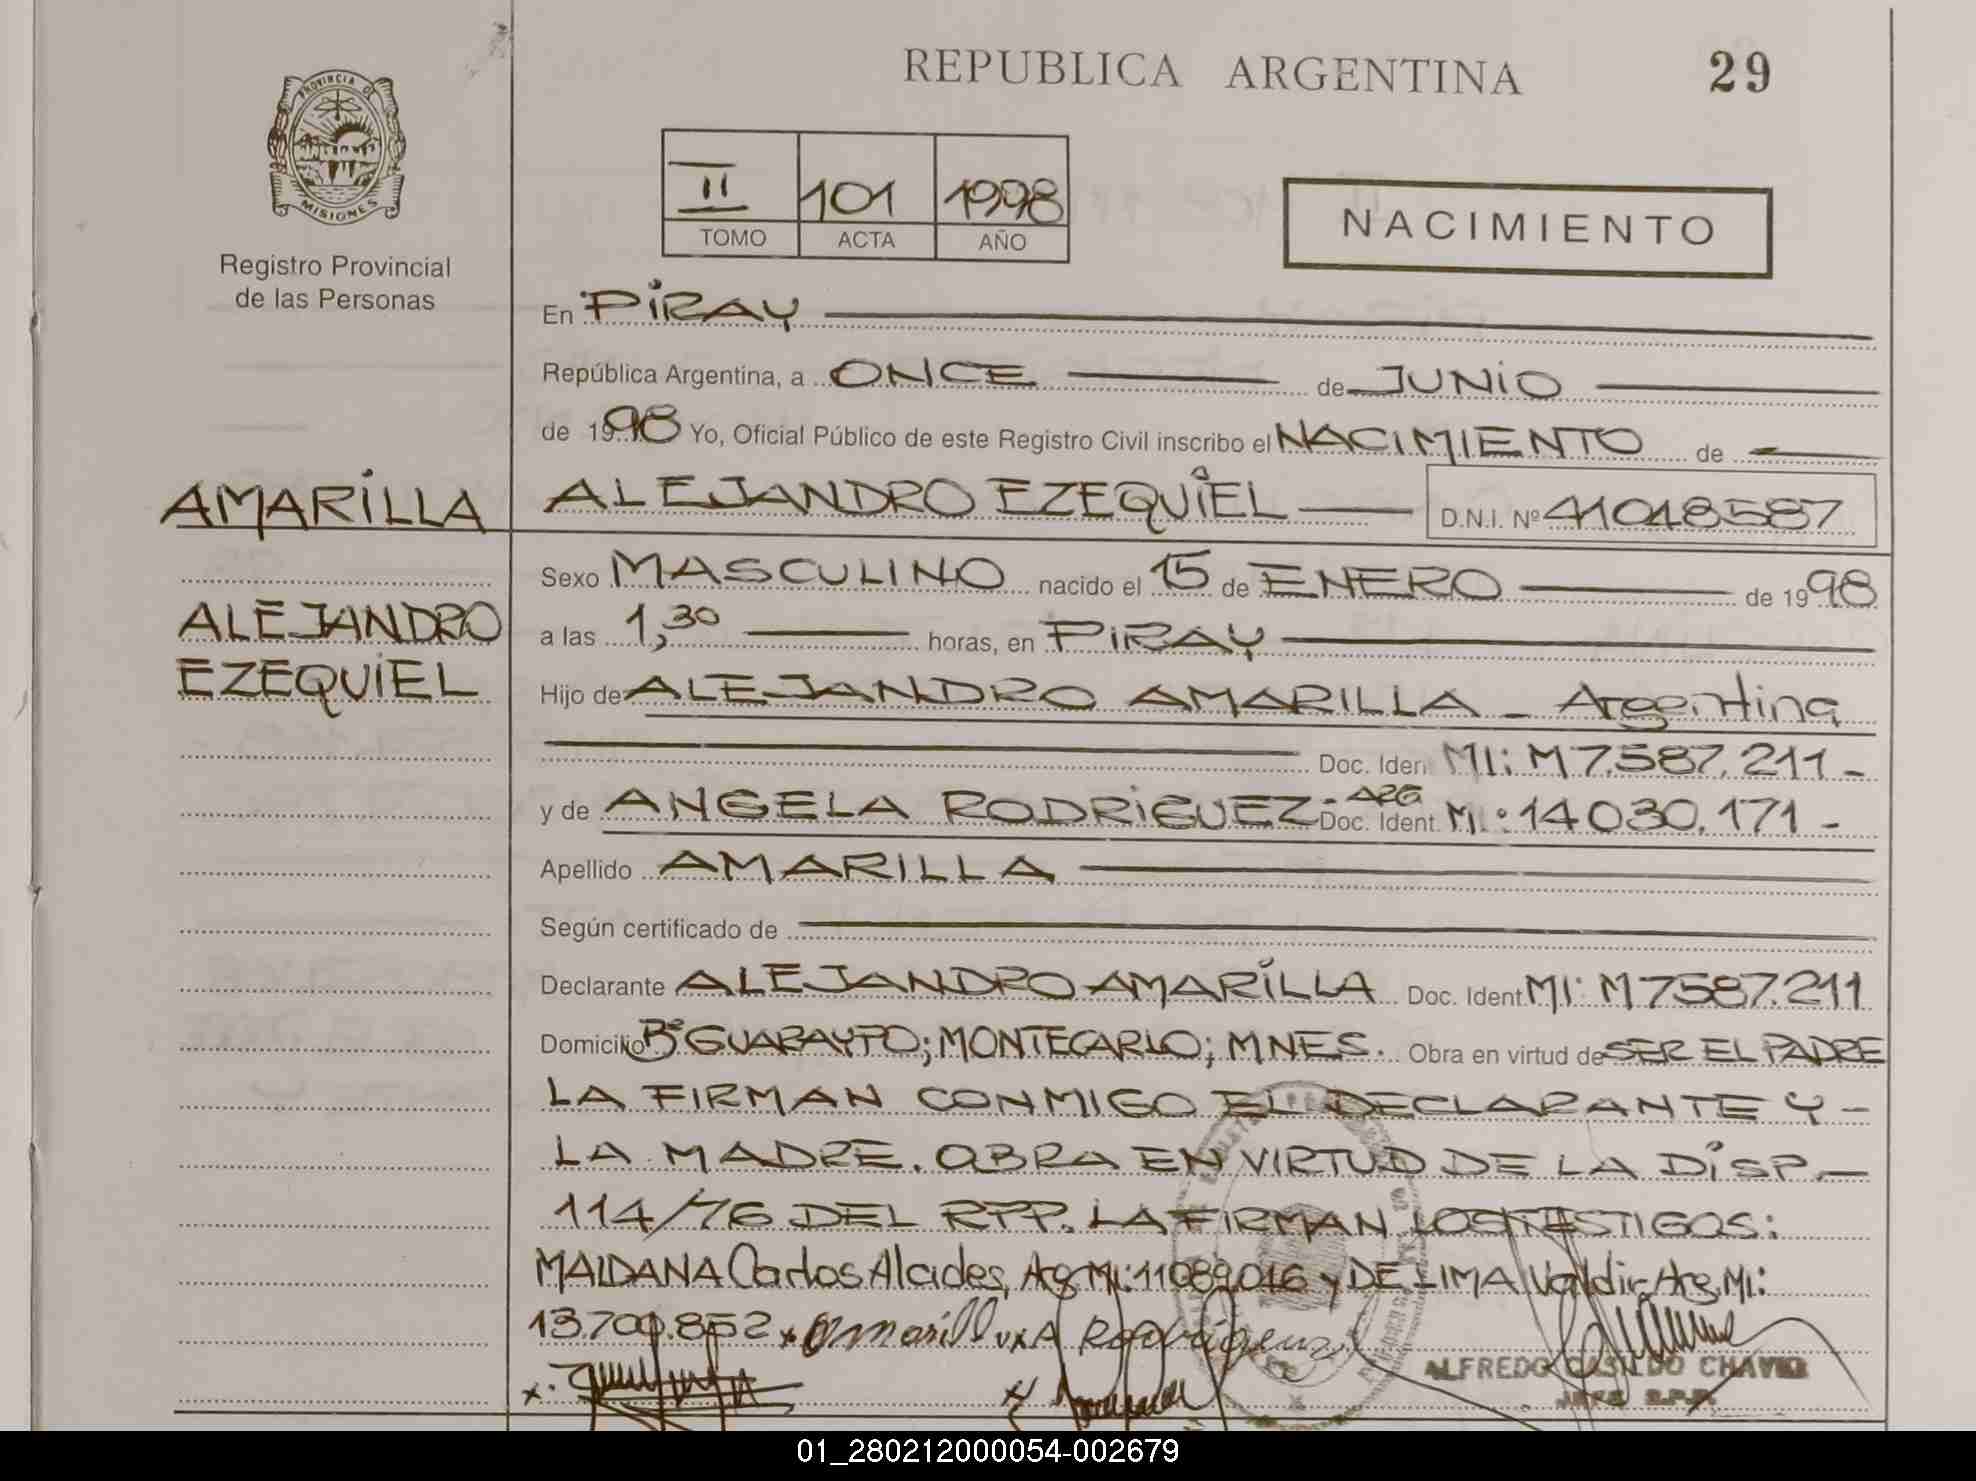 REPUBLICA ARGENTINA
29
PROVINCIA DE
MISIONES
Registro Provincial
de las Personas
II 101 1998
TOMO ACTA AÑO
NACIMIENTO
En PIRAY
República Argentina, a ONCE de JUNIO
de 1998 Yo, Oficial Público de este Registro Civil inscribo el NACIMIENTO de
AMARILLA
ALEJANDRO EZEQUIEL D.N.I. Nº 41048587
ALEJANDRO
EZEQUIEL
Sexo MASCULINO nacido el 15 de ENERO de 1998
a las 1,30 horas, en PIRAY
Hijo de ALEJANDRO AMARILLA - Argentina
Doc. Iden MI: M 7.587.211 -
y de ANGELA RODRIGUEZ - ARG Doc. Ident. M.: 14030.171 -
Apellido AMARILLA
Según certificado de
Declarante ALEJANDRO AMARILLA Doc. Ident MI: M 7587.211
Domicilio Bº GUARAYPO; MONTECARLO; MNES. Obra en virtud de SER EL PADRE
LA FIRMAN CONMIGO EL DECLARANTE Y -
LA MADRE. OBRA EN VIRTUD DE LA DISP. -
114/76 DEL RPP. LA FIRMAN LOS TESTIGOS:
MALDANA Carlos Alcides, Arg MI: 11089016 y DE LIMA Valdir, Arg, MI:
13.700.852 x Amarilla x A Rodriguez
ALFREDO CASILDO CHAVEZ
01_280212000054-002679